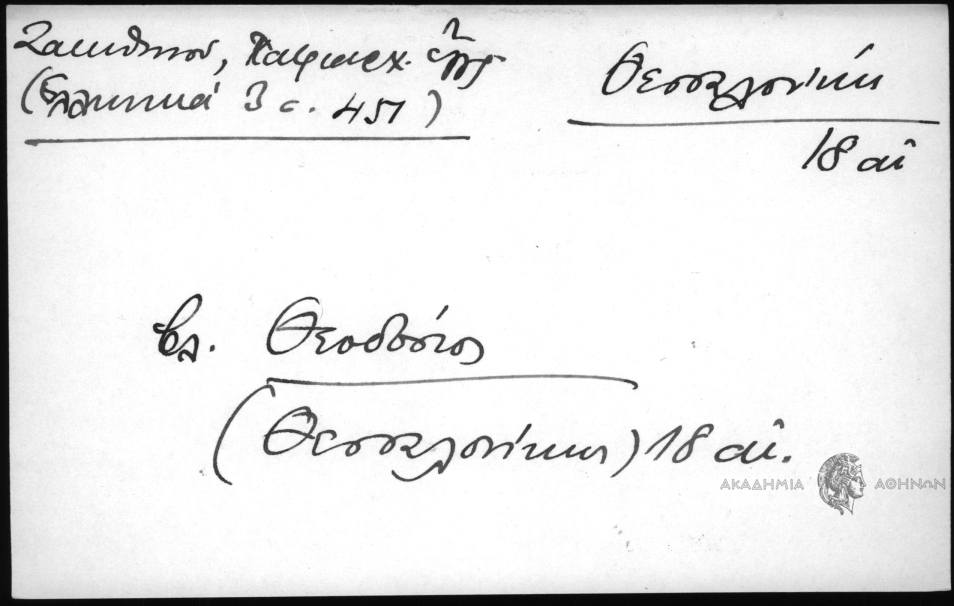 Ζακυθηνού, Πατριαρχ. έγγρ
(Ελληνικά 3 σ. 451)
Θεσσαλονίκη
18 αἰ
βλ. Θεοδόσιος
(Θεσσαλονίκης) 18 αἰ.
ΑΚΑΔΗΜΙΑ ΑΘΗΝΩΝ